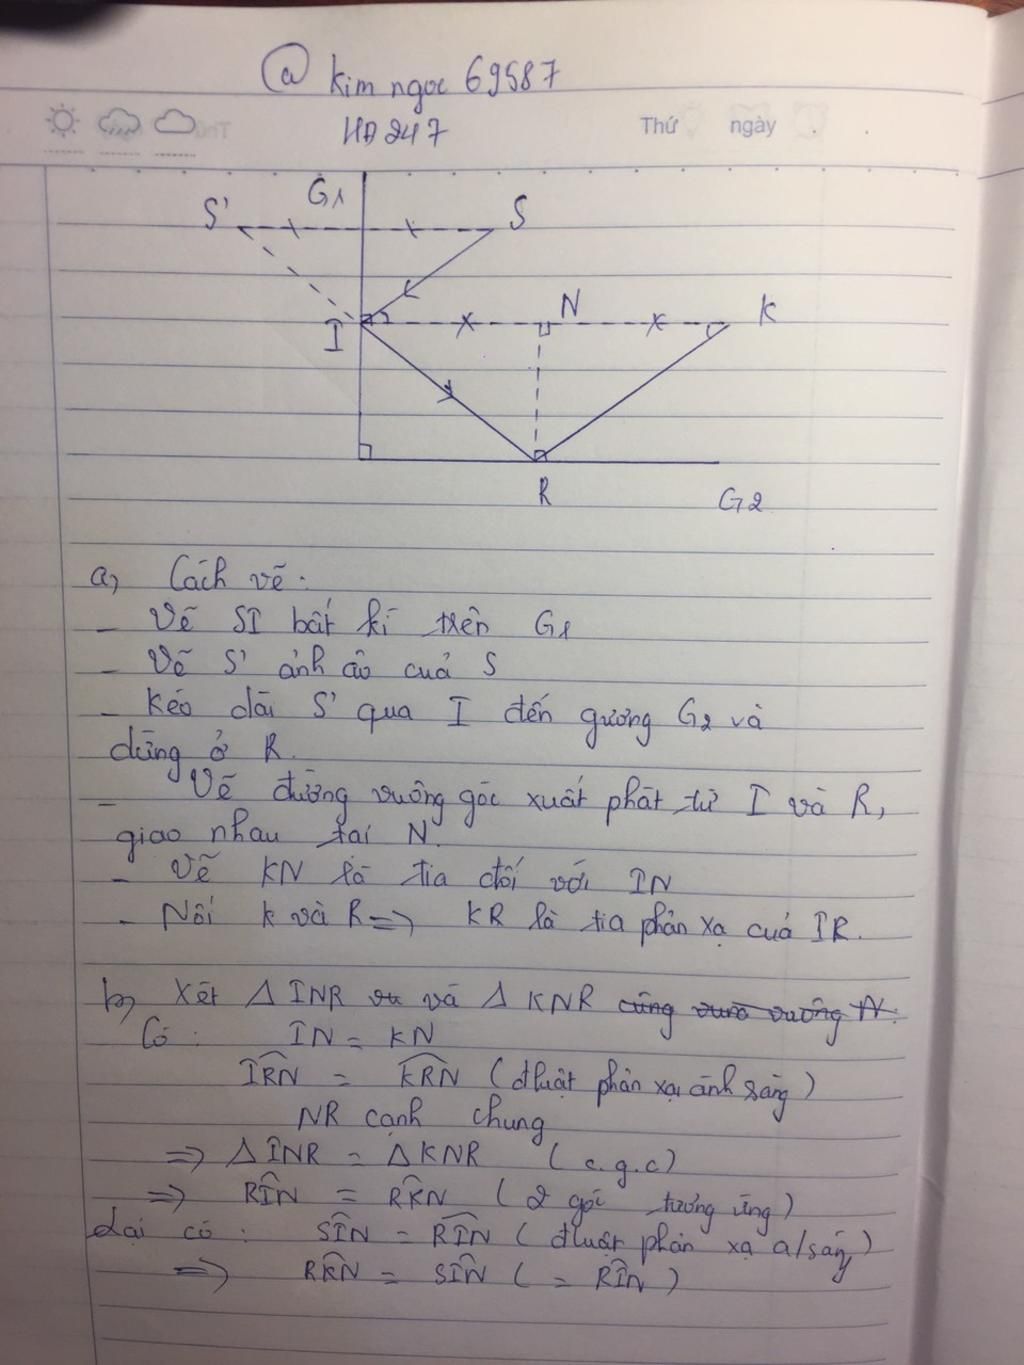 @ kim ngoc 69587
HĐ 247
Thứ ngày
G1
S' S
I N K
R G2
a, Cách vẽ:
- Vẽ SI bất kì trên G1
- Vẽ S' ảnh ảo của S
- Kéo dài S' qua I đến gương G2 và
dừng ở R.
- Vẽ đường vuông góc xuất phát từ I và R,
giao nhau tại N.
- Vẽ KN là tia đối với IN
- Nối K và R => KR là tia phản xạ của IR.
b, Xét Δ INR và Δ KNR cùng vuông N.
Có: IN = KN
IRN = KRN (đ luật phản xạ ánh sáng)
NR cạnh chung
=> Δ INR = Δ KNR (c.g.c)
=> RIN = RKN (2 góc tương ứng)
Lại có: SIN = RIN (đ luật phản xạ a/sáng)
=> RKN = SIN (= RIN)